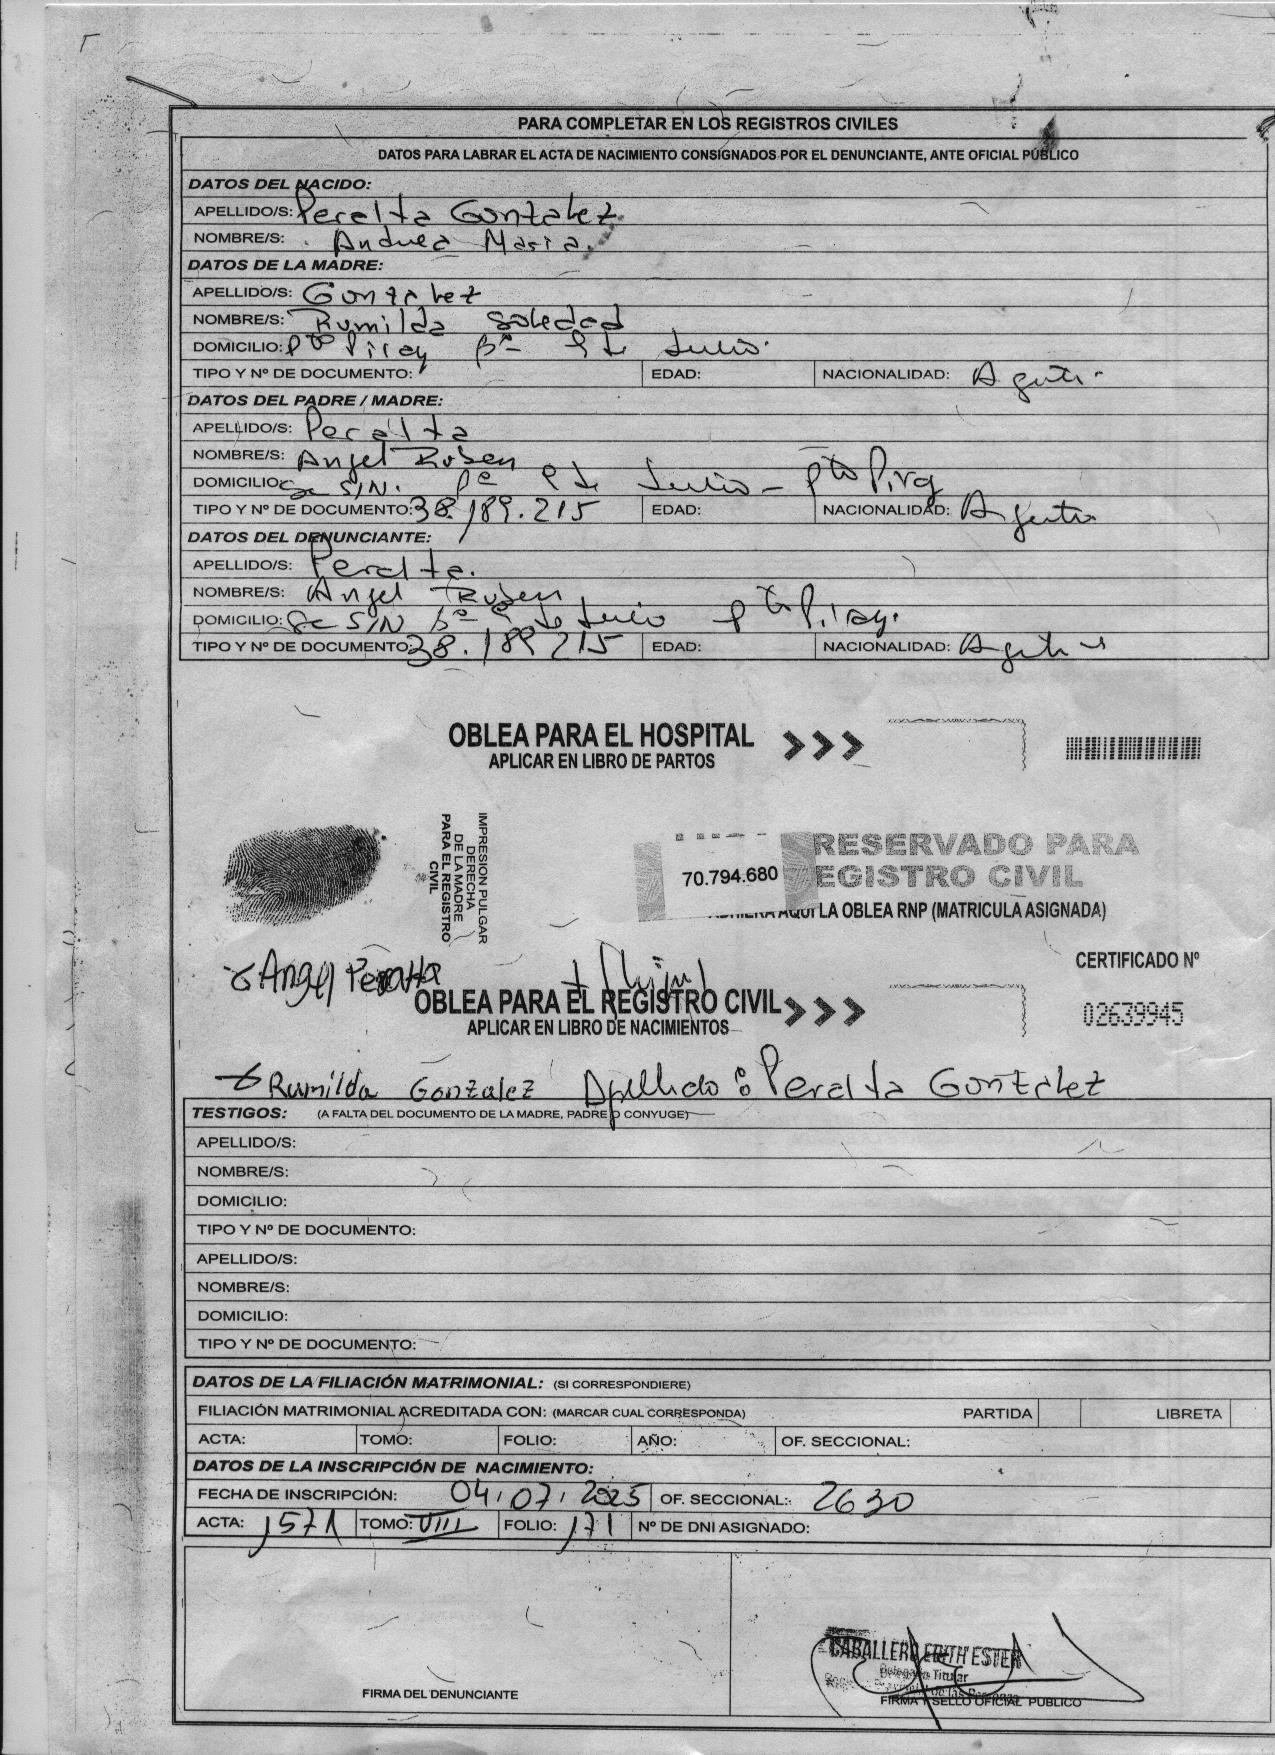 PARA COMPLETAR EN LOS REGISTROS CIVILES
DATOS PARA LABRAR EL ACTA DE NACIMIENTO CONSIGNADOS POR EL DENUNCIANTE, ANTE OFICIAL PÚBLICO
DATOS DEL NACIDO:
APELLIDO/S: Peralta Gonzalez
NOMBRE/S: Andrea Maria.
DATOS DE LA MADRE:
APELLIDO/S: Gonzalez
NOMBRE/S: Rumilda Soledad
DOMICILIO: Pto Piray Bº 9 de Julio.
TIPO Y Nº DE DOCUMENTO: EDAD: NACIONALIDAD:
DATOS DEL PADRE / MADRE:
APELLIDO/S: Peralta
NOMBRE/S: Angel Ruben
DOMICILIO: S/N. Bº 9 de Julio - Pto Piray
TIPO Y Nº DE DOCUMENTO: 38.189.215 EDAD: NACIONALIDAD:
DATOS DEL DENUNCIANTE:
APELLIDO/S: Peralta.
NOMBRE/S: Angel Ruben
DOMICILIO: S/N Bº 9 de Julio Pto Piray.
TIPO Y Nº DE DOCUMENTO: 38.189.215 EDAD: NACIONALIDAD:
OBLEA PARA EL HOSPITAL >>>
APLICAR EN LIBRO DE PARTOS
IMPRESION PULGAR
DERECHA
DE LA MADRE
PARA EL REGISTRO
CIVIL
RESERVADO PARA
70.794.680 EGISTRO CIVIL
LA OBLEA RNP (MATRICULA ASIGNADA)
CERTIFICADO Nº
Angel Peralta
OBLEA PARA EL REGISTRO CIVIL >>>
02639945
APLICAR EN LIBRO DE NACIMIENTOS
Rumilda Gonzalez Apellido: Peralta Gonzalez
TESTIGOS: (A FALTA DEL DOCUMENTO DE LA MADRE, PADRE O CONYUGE)
APELLIDO/S:
NOMBRE/S:
DOMICILIO:
TIPO Y Nº DE DOCUMENTO:
APELLIDO/S:
NOMBRE/S:
DOMICILIO:
TIPO Y Nº DE DOCUMENTO:
DATOS DE LA FILIACIÓN MATRIMONIAL: (SI CORRESPONDIERE)
FILIACIÓN MATRIMONIAL ACREDITADA CON: (MARCAR CUAL CORRESPONDA) PARTIDA LIBRETA
ACTA: TOMO: FOLIO: AÑO: OF. SECCIONAL:
DATOS DE LA INSCRIPCIÓN DE NACIMIENTO:
FECHA DE INSCRIPCIÓN: 04/07/2025 OF. SECCIONAL: 2630
ACTA: 1571 TOMO: VIII FOLIO: 171 Nº DE DNI ASIGNADO:
CABALLERO EDITH ESTER
Delegado Titular
FIRMA DEL DENUNCIANTE
FIRMA Y SELLO OFICIAL PUBLICO